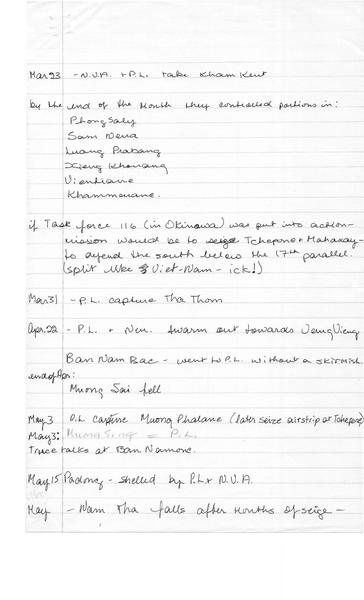 Mar 23 - N.V.A. + P.L. take Kham Keut
by the end of the month they controlled portions in:
Phong Saly
Sam Neua
Luang Prabang
Xieng Khouang
Vientiane
Khammouane.
if Task force 116 (in Okinawa) was put into action-
mission would be to Tchepone + Mahaxay-
to defend the south below the 17th parallel.
(split like Viet-Nam - ick!)
Mar 31 - P.L. capture Tha Thom
Apr. 22 - P.L. + Neu. swarm out towards Vang Vieng
Ban Nam Bac - went to P.L. without a skirmish
end of Apr:
Muong Sai fell
May 3 P.L. capture Muong Phalane (later seize airstrip at Tchepone)
May 3: Muong Sing = P.L.
Truce talks at Ban Namone.
May 15 Padong - shelled by P.L. + N.V.A.
May - Nam Tha falls after months of seige -